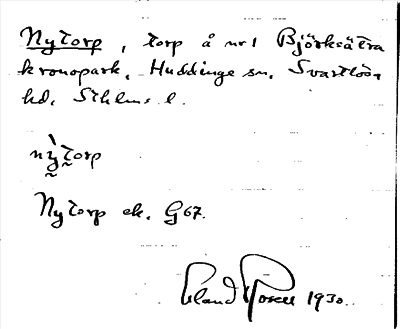 Nytorp, torp å nr 1 Björksätra
kronopark, Huddinge sn, Svartlösa
hd, Sthlms l.
nỳtorp
Nytorp ek. G67.
Erland Rosell 1930.